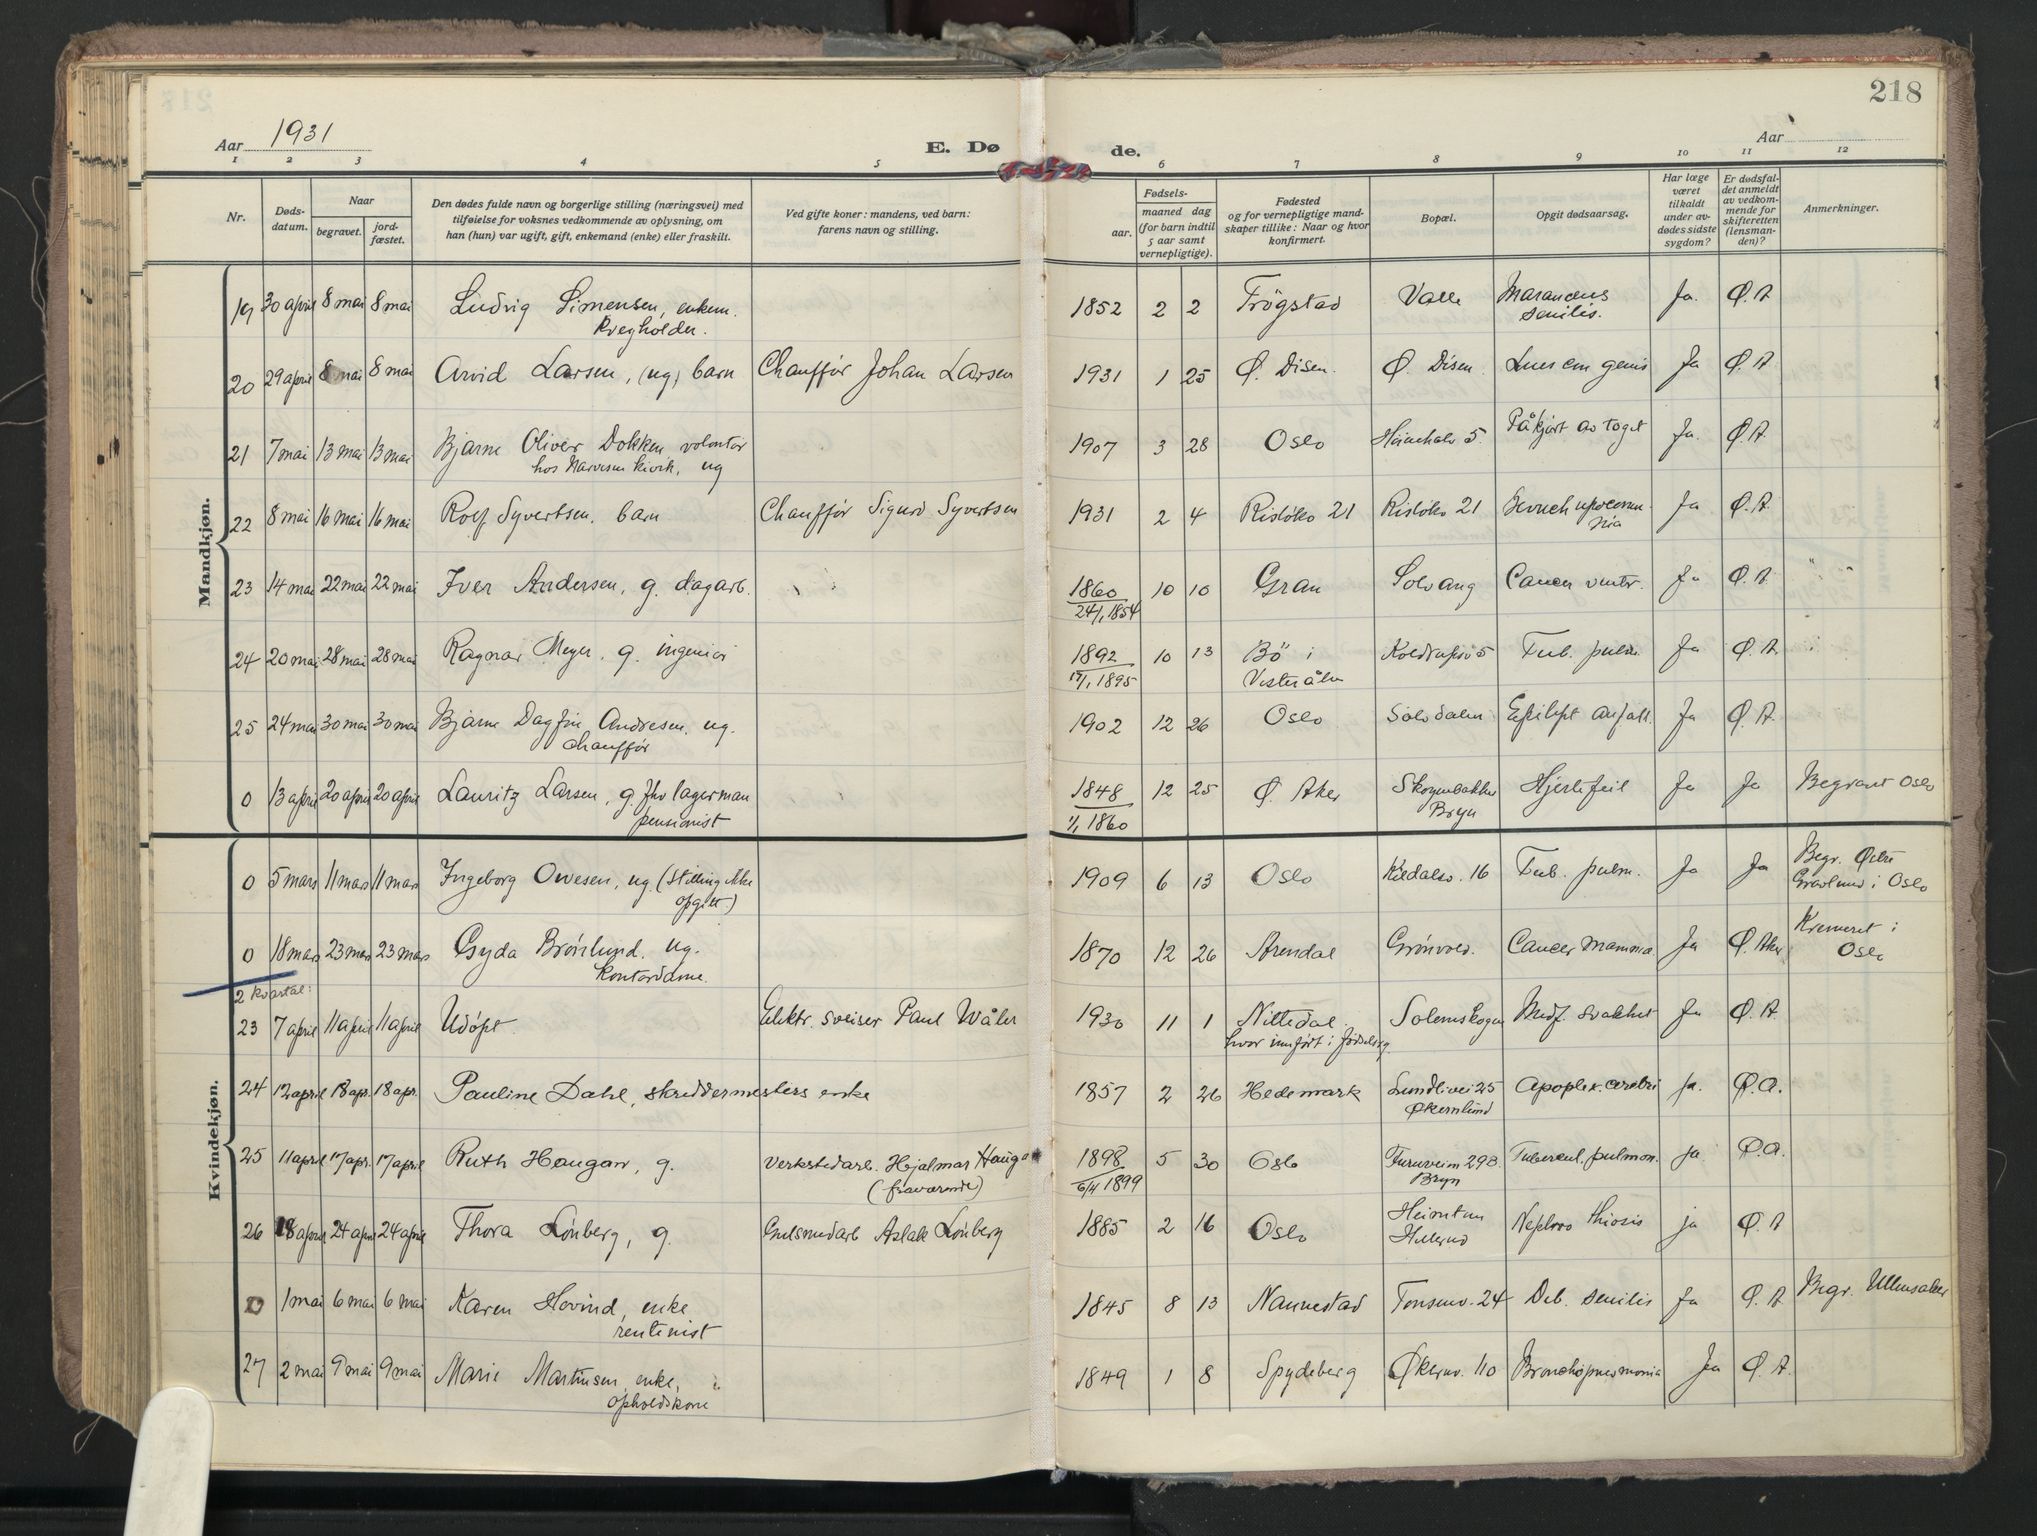 218
Aar 1931
E. Dø de.
Aar
1 2 3 4 5 6 7 8 9 10 11 12
Nr.
Døds-
datum.
Naar
begravet.
jord-
fæstet.
Den dødes fulde navn og borgerlige stilling (næringsvei) med
tilføielse for voksnes vedkommende av oplysning, om
han (hun) var ugift, gift, enkemand (enke) eller fraskilt.
Ved gifte koner: mandens, ved barn:
farens navn og stilling.
Fødsels-
aar.
maaned dag
(for barn indtil
5 aar samt
vernepligtige).
Fødested
og for vernepligtige mand-
skaper tillike: Naar og hvor
konfirmert.
Bopæl.
Opgit dødsaarsag.
Har læge
været
tilkaldt
under av-
dødes sidste
sygdom?
Er dødsfal-
det anmeldt
av vedkom-
mende for
skifteretten
(lensman-
den)?
Anmerkninger.
Mandkjøn.
19 30 april 8 mai 8 mai Ludvig Simensen, enkem. 1852 2 2 Trøgstad Valle Marasmus Ja. Ø. A
Kvegholder. senilis.
20 29 april 8 mai 8 mai Arvid Larsen, (ug) barn Chauffør Johan Larsen 1931 1 25 Ø. Disen. Ø. Disen. Lues con genit Ja Ø. A.
21 7 mai 13 mai 13 mai Bjarne Oliver Dokken, volontør 1907 3 28 Oslo 5. Påkjørt av toget Ja. Ø. A.
hos Narvesen kiosk, ug
22 8 mai 16 mai 16 mai Rolf Syvertsen, barn Chauffør Sigurd Syvertsen 1931 2 4 Risløko 21 Risløko 21 Bronchopneumo- Ja Ø. A.
nia
23 14 mai 22 mai 22 mai Iver Andersen, g. dagarb. 1860 10 10 Gran Solvang Cancer ventr. Ja Ø. A.
24/1, 1854
24 20 mai 28 mai 28 mai Ragnar Meyer, g. ingeniør 1892 10 13 Bö i 5 Tub. pulm. Ja Ø. A.
1895 Vesterålen
25 24 mai 30 mai 30 mai Bjarne Dagfin Andresen, ug. 1902 12 26 Oslo Solodalen Epilept anfall. Ja Ø. A.
chauffør
0 13 april 20 april 20 april Lauritz Larsen, g. fhv lagerman 1848 12 25 Ø. Aker Skogenbakken Hjertefeil Ja Ja Begravet Oslo
pensionist 1/1 1860 Bryn
Kvindekjøn.
0 5 mars 11 mars 11 mars Ingeborg Owesen, ug. (stilling ikke 1909 6 13 Oslo Kildalsv. 16 Tub. pulm. Ja Ja Begr. Østre
opgitt) Gravlund i Oslo
0 18 mars 23 mars 23 mars Gyda Brönlund, ug. 1870 12 26 Arendal Grönvold. Cancer mamma. Ja Ø. Aker Kremert i
kontordame. Oslo
2 kvartal:
23 7 april 11 april 11 april Udöpt. Elektr. sveiser Paul Wåler 1930 11 1 Nittedal Solemskogen Medf. svakhet Ja Ø. A.
hvor innført i fødselsreg.
24 12 april 18 apr. 18 apr. Pauline Dahl, skreddermesters enke 1857 2 26 Hedemark Lundlivei 25 Apoplex. cerebri ja. Ø. A.
Økernlund
25 11 april 17 apr. 17 april Ruth Haugan, g. Verkstedarb. Hjalmar Haugan 1898 5 30 Oslo Furuveien 298. Tubercul. pulmon. ja. Ø. A.
(fraværende) 6/4 1899 Bryn
26 18 april 24 april 24 april Thora Lönberg, g. Gulsmedarb Aslak Lönberg 1885 2 16 Oslo Heimtun Nephro thiosis ja Ø. A
Hellerud
0 1 mai 6 mai 6 mai Karen Hovind, enke 1845 8 13 Nannestad Tonsenv. 24 Deb. senilis Ja Ø. A Begr. Ullensaker
rentenist
27 2 mai 9 mai 9 mai Marie Martinsen, enke, 1849 1 8 Spydeberg Økernv. 110 Bronchopneumonia Ja Ø. A.
opholdskone